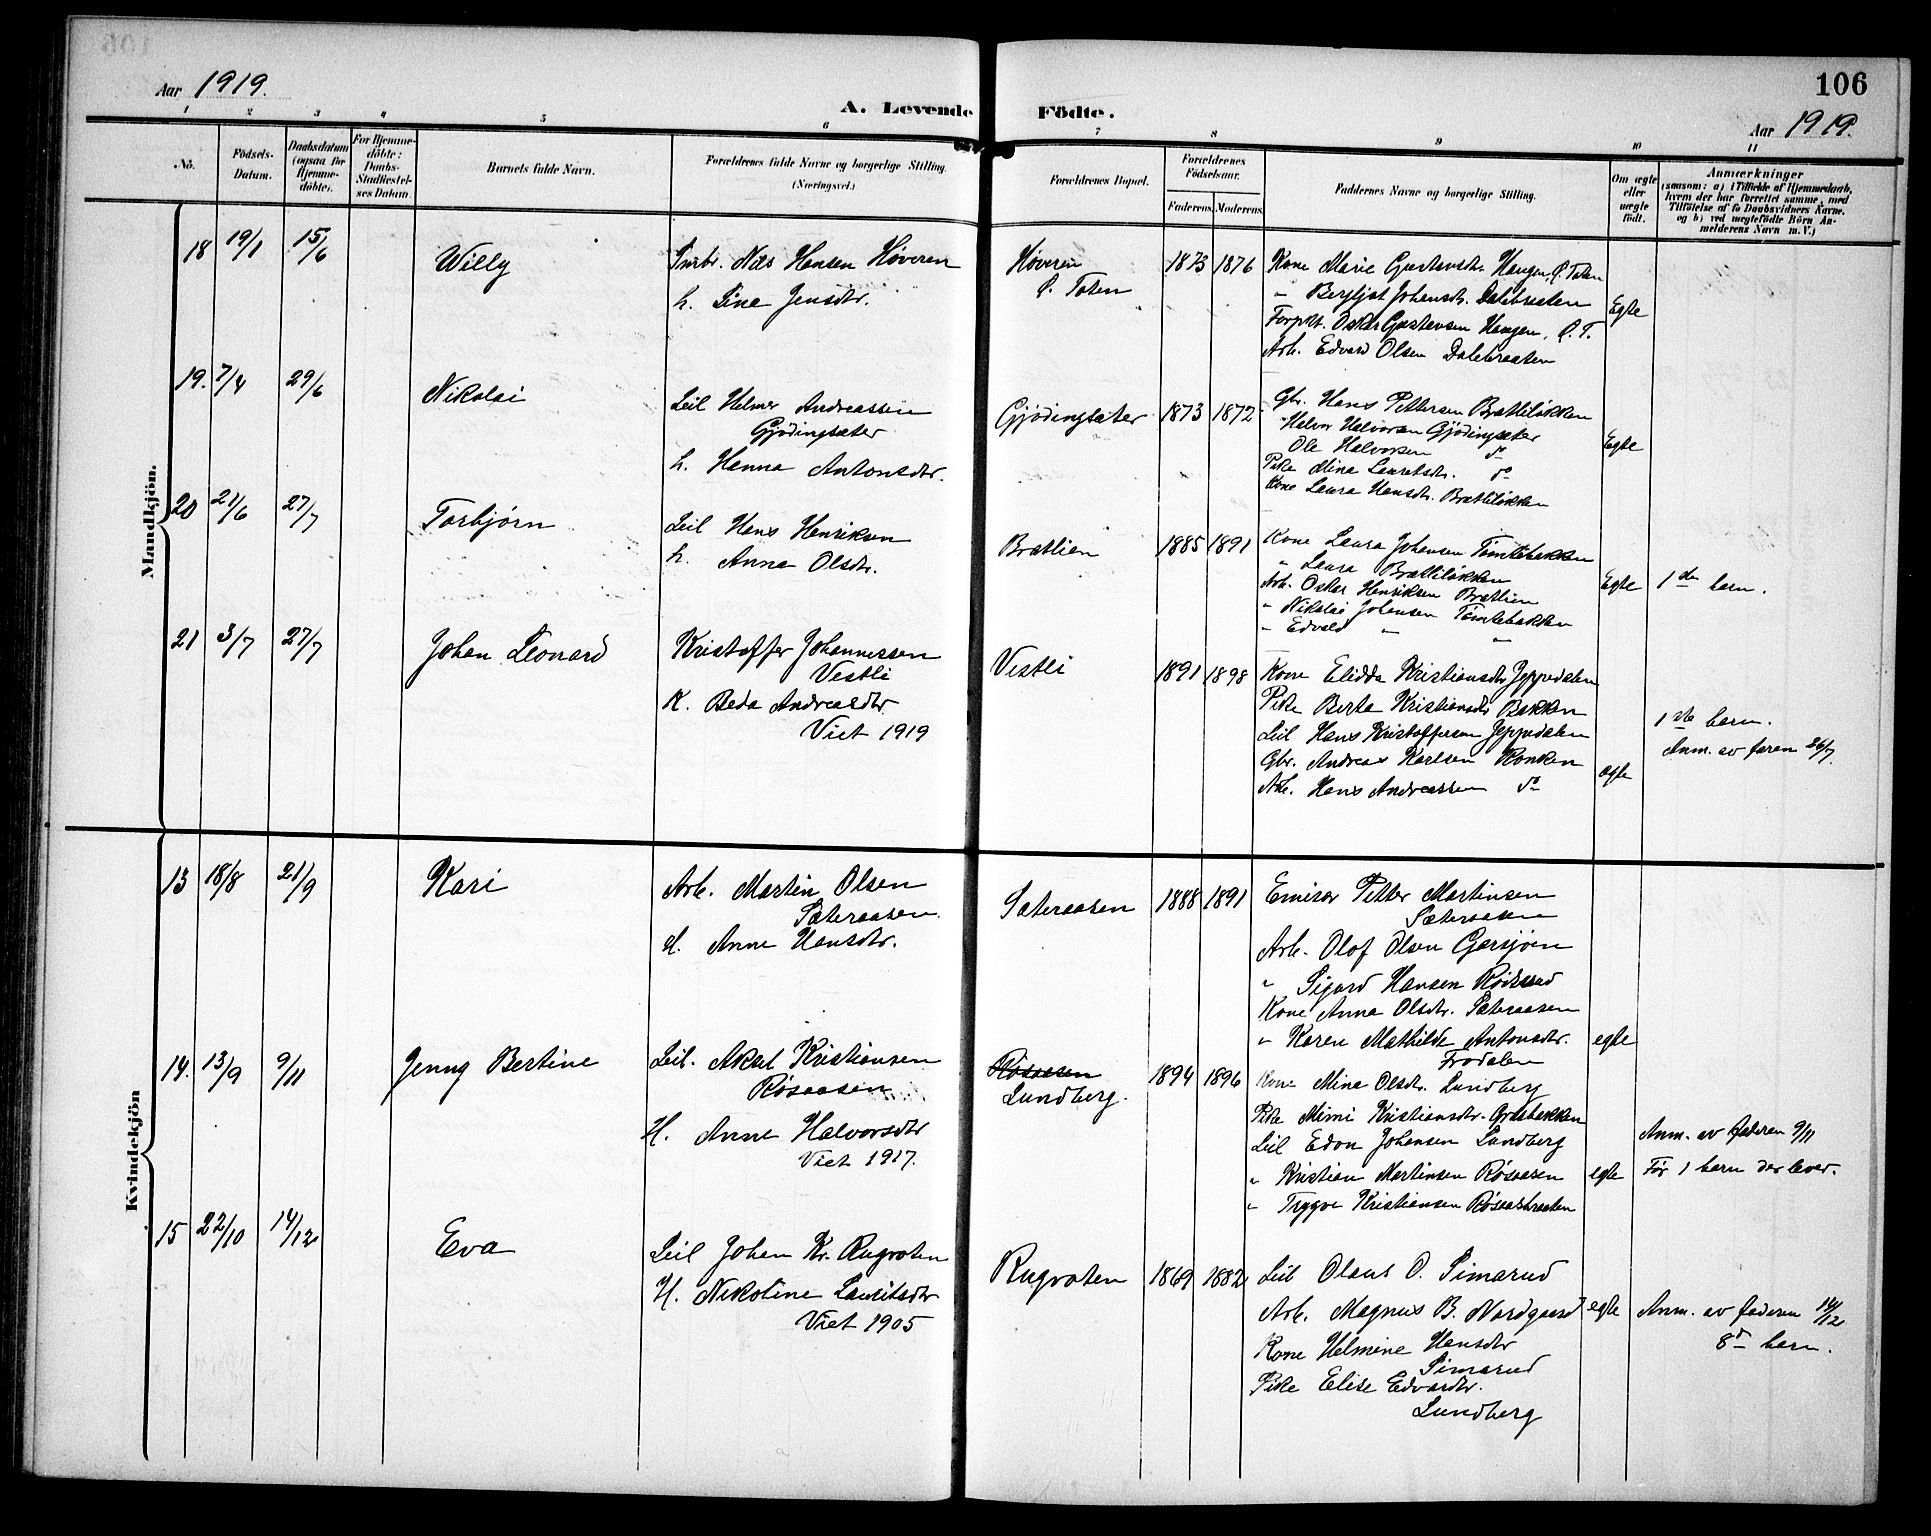 106
Aar 1919.
A. Levende Födte.
Aar 1919.
1 2 3 4 5 6 7 8 9 10 11
No.
Födsels-Datum.
Daabsdatum (ogsaa for Hjemmedöbte).
For Hjemmedöbte: Daabs-Stadfæstelses Datum.
Barnets fulde Navn.
Forældrenes fulde Navne og borgerlige Stilling. (Næringsvei.)
Forældrenes Bopæl.
Forældrenes Födselsaar.
Faderens. Moderens.
Faddernes Navne og borgerlige Stilling.
Om ægte eller uægte födt.
Anmærkninger (saasom: a) i Tilfælde af Hjemmedaab, hvem der har forrettet samme, med Tilföielse af to Daabsvidners Navne, og b) ved uægtefödte Börn Anmelderens Navn m. V.)
Mandkjön.
18 19/1 15/6 Willy
Nils Hansen Høveren
h. Lina Jensdtr.
Høveren
Ø. Toten
1873 1876
Kone Marie Gustavsdtr. Haugen, Ø. Toten
" Bergljot Johansdtr. Dalebraaten
Forpkt. Oskar Gustavsen Haugen, Ø. T.
Arb. Edvard Olsen Dalebraaten
Egte
19. 7/4 29/6 Nikolai
Leil Helmer Andreassen
Gjödingsæter
h. Hanna Antonsdtr.
Gjödingsæter
1873 1872
Gbr. Hans Pettersen Brætteløkken
Halvor Halvorsen Gjödingsæter
Ole Halvorsen do
Pike Mina Lauritsdtr. do
Kone Laura Hansdtr. Brætteløkken
Egte
20 21/6 27/7 Torbjørn
Leil Hans Henriksen
h. Anna Olsdtr.
Brætlien
1885 1891
Kone Laura Johansen Tomtebakken
" Laura Brætteløkken
Arb. Oskar Henriksen Brætlien
" Nikolai Johansen Tomtebakken
" Edvald " "
Egte
1ste barn.
21 3/7 27/7 Johan Leonard
Kristoffer Johannessen
Vestli
K. Beda Andreasdtr
Viet 1919
Vestli
1891 1898
Kone Elidda Kristiansdtr Jeppedalen
Pike Berta Kristiansdtr Bakken
Leil Hans Kristoffersen Jeppedalen
Gbr. Andreas Karlsen Ronken
Arb. Hans Andreassen do
ægte
1ste barn.
Anm. av faren 26/7
Kvindekjön
13 18/8 21/9 Kari
Arb. Martin Olsen
Sæteraasen
H. Anne Hansdtr.
Sæteraasen
1888 1891
Emisær Petter Martinsen
Sæteraasen
Arb. Olof Olsen Garsjøen
" Sigurd Hansen Rødsrud
Kone Anna Olsdtr. Sæteraasen
" Karen Mathilde Antonsdtr.
Frodalen
egte
14. 13/9 9/11 Jenny Bertine
Leil. Aksel Kristiansen
Røsaasen
H. Anne Halvorsdtr
Viet 1917.
Røsaasen
Lundberg.
1894 1896
Kone Mina Olsdtr. Lundberg
Pike Mimi Kristiansdtr.
Leil Edon Johansen Lundberg
" Kristian Martinsen Røsaasen
" Trygve Kristiansen Røsaasbraaten
egte
Anm. av faderen 9/11
Før 1 barn der lever.
15 22/10 14/12 Eva
Leil Johan Kr. Rugroten
H. Nikoline Lauritsdtr
Viet 1905
Rugroten
1869 1882
Leil Olaus O. Simarud
Arb. Magnus B. Nordgaard
Kone Helmine Hansdtr
Simarud
Pike Elise Edvardtr.
Lundberg
egte
Anm. av faderen 14/12
8d barn.